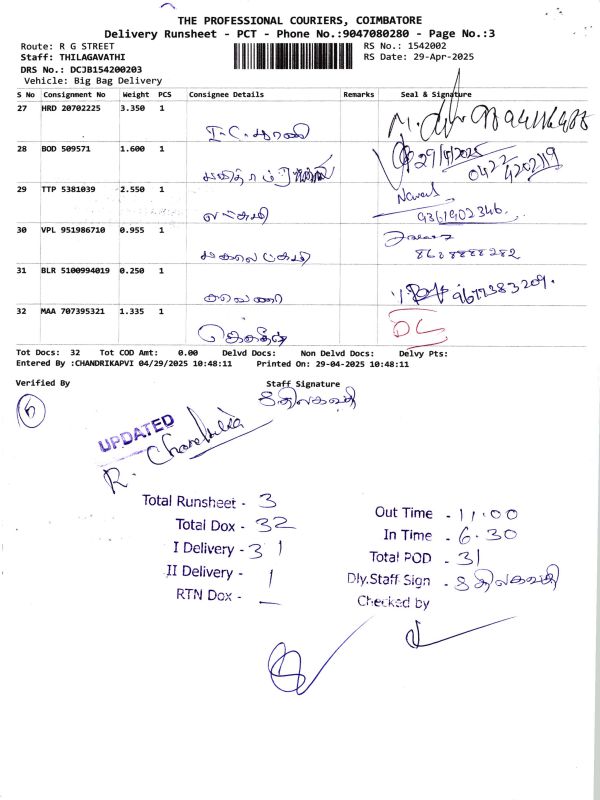 THE PROFESSIONAL COURIERS, COIMBATORE
Delivery Runsheet - PCT - Phone No.:9047080280 - Page No.:3
Route: R G STREET
RS No.: 1542002
Staff: THILAGAVATHI
RS Date: 29-Apr-2025
DRS No.: DCJB154200203
Vehicle: Big Bag Delivery
S No Consignment No Weight PCS Consignee Details Remarks Seal & Signature
27 HRD 20702225 3.350 1
28 BOD 509571 1.600 1
29/4/2025
0422
4202119
29 TTP 5381039 2.550 1
லட்சுமி
9361902346
30 VPL 951986710 0.955 1
8628888282
31 BLR 5100994019 0.250 1
9677383209
32 MAA 707395321 1.335 1
DL
Tot Docs: 32 Tot COD Amt: 0.00 Delvd Docs: Non Delvd Docs: Delvy Pts:
Entered By :CHANDRIKAPVI 04/29/2025 10:48:11 Printed On: 29-04-2025 10:48:11
Verified By Staff Signature
திலகவதி
6
UPDATED
R. Chandrika
Total Runsheet - 3
Total Dox - 32
I Delivery - 31
II Delivery - 1
RTN Dox - _
Out Time - 11.00
In Time - 6.30
Total POD - 31
Dly.Staff Sign - திலகவதி
Checked by